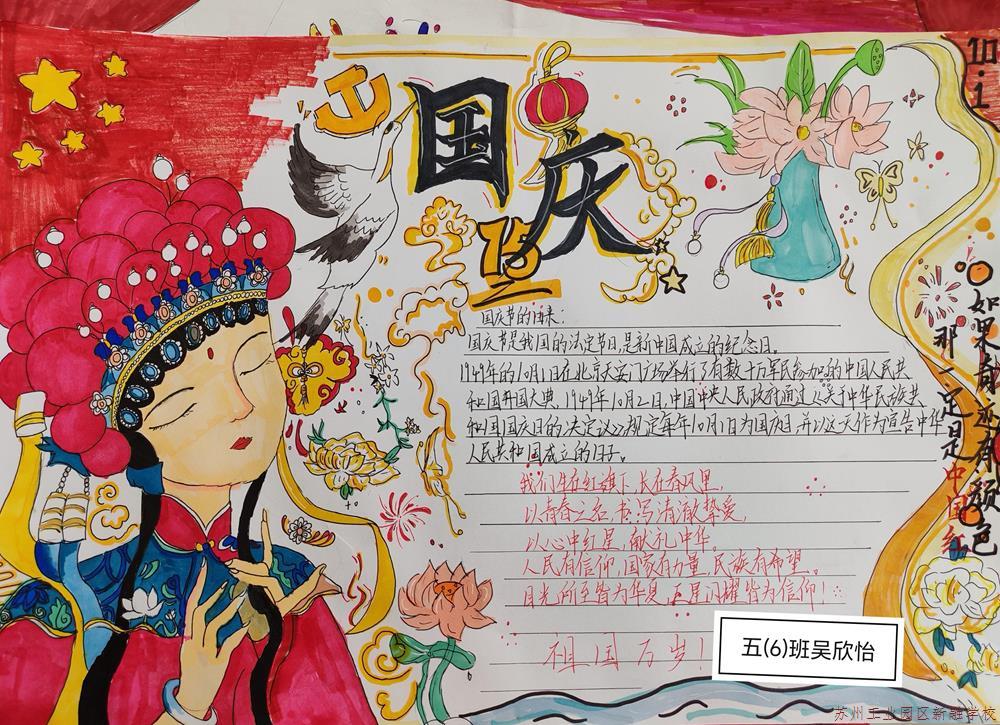 国庆
75
10.1
国庆节的由来:
国庆节是我国的法定节日,是新中国成立的纪念日。
1949年的10月1日在北京天安门广场举行了有数十万军民参加的中国人民共
和国开国大典。1949年10月2日,中国中央人民政府通过《关于中华民族共
和国国庆日的决定议》规定每年10月1日为国庆日,并以这天作为宣告中华
人民共和国成立的日子。
我们生在红旗下,长在春风里,
以青春之名,书写清澈挚爱,
以心中红星,献礼中华
人民有信仰,国家有力量,民族有希望。
目光所至皆为华夏,五星闪耀皆为信仰!
祖国万岁!
如果有颜色
那一定是中国红
五(6)班吴欣怡
苏州工业园区新融学校